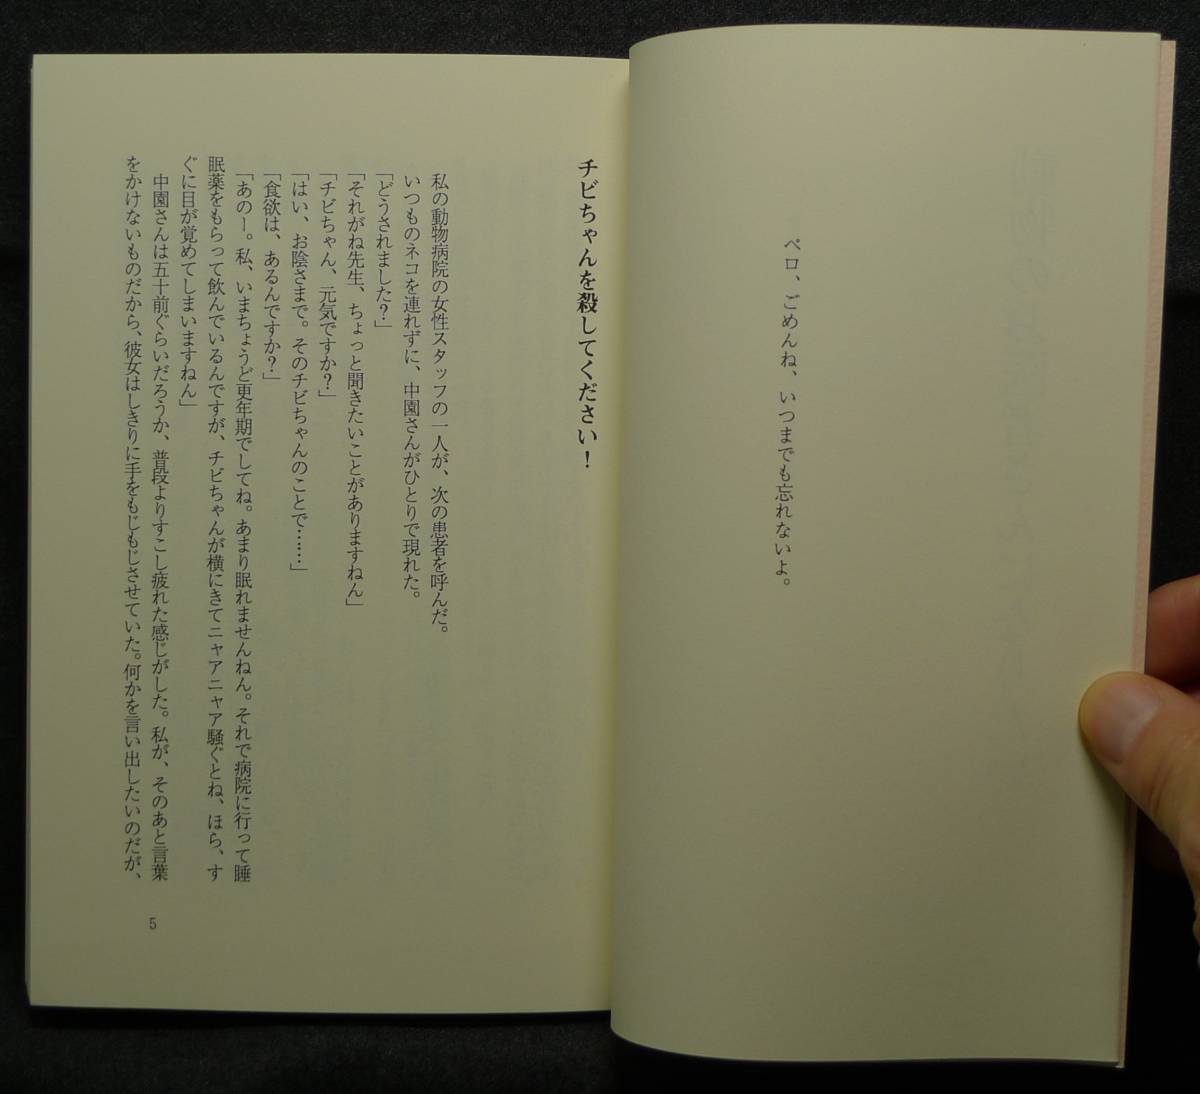 ペロ、ごめんね、いつまでも忘れないよ。
チビちゃんを殺してください！
私の動物病院の女性スタッフの一人が、次の患者を呼んだ。
いつものネコを連れずに、中園さんがひとりで現れた。
「どうされました？」
「それがね先生、ちょっと聞きたいことがありますねん」
「チビちゃん、元気ですか？」
「はい、お陰さまで。そのチビちゃんのことで……」
「食欲は、あるんですか？」
「あのー。私、いまちょうど更年期でしてね。あまり眠れませんねん。それで病院に行って睡
眠薬をもらって飲んでいるんですが、チビちゃんが横にきてニャアニャア騒ぐとね、ほら、す
ぐに目が覚めてしまいますねん」
中園さんは五十前ぐらいだろうか、普段よりすこし疲れた感じがした。私が、そのあと言葉
をかけないものだから、彼女はしきりに手をもじもじさせていた。何かを言い出したいのだが、
5